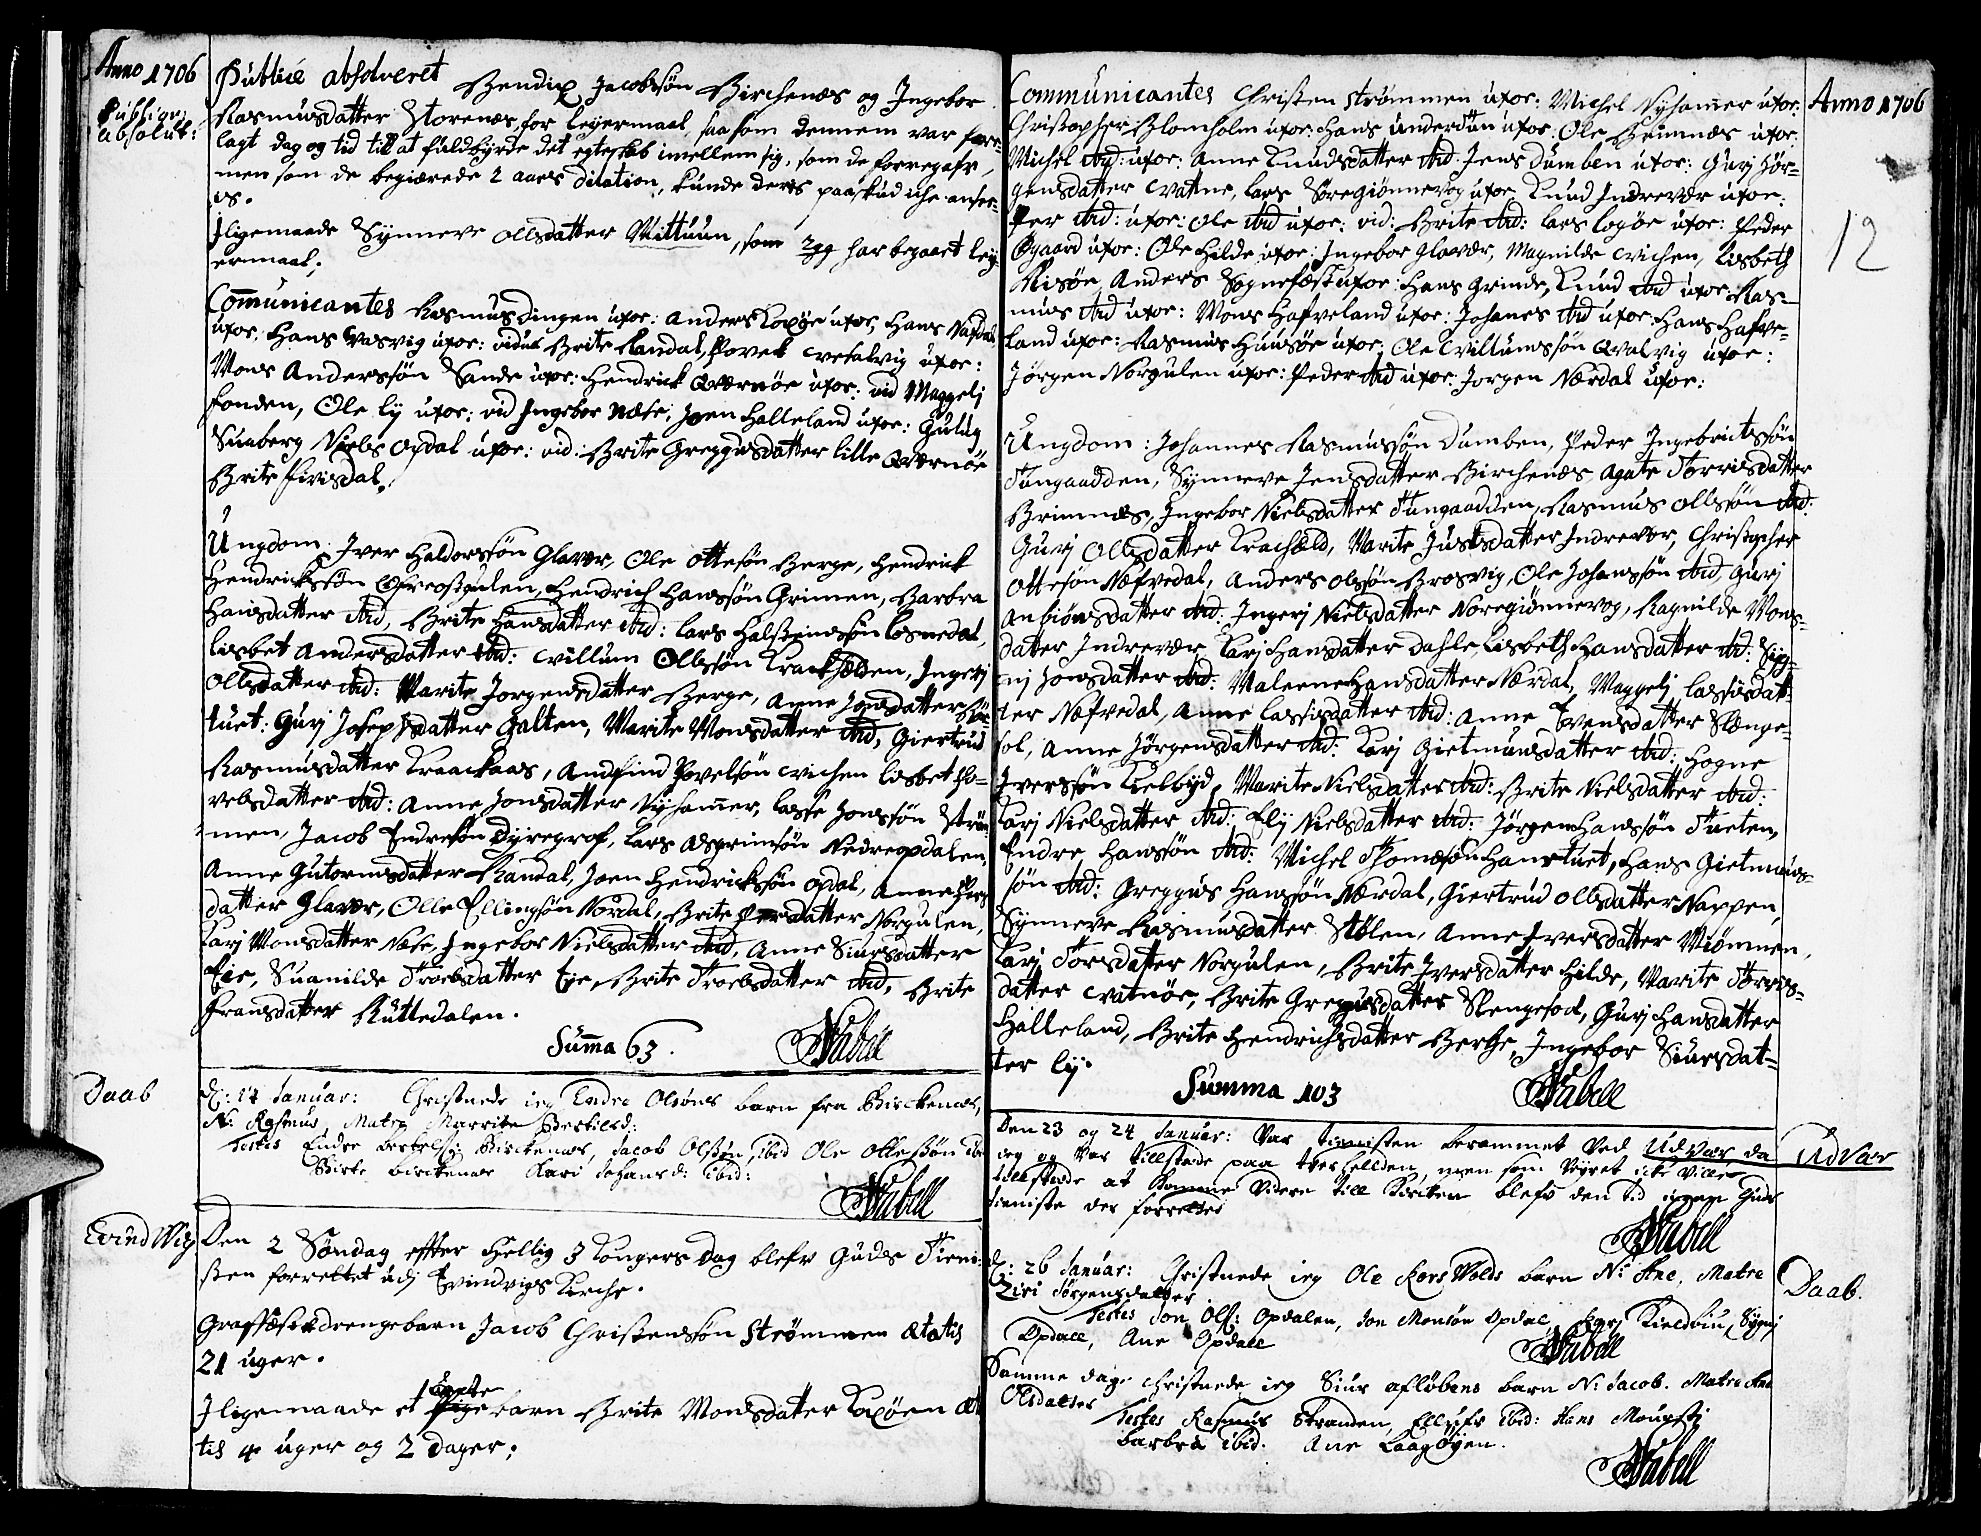 Anno 1706
Publicè absolveret Bendix Jacobsøn Birchenæs og Ingebor
Publiqv: absolut:
Rasmusdatter Storenæs, for leyermaal, saasom dennem var fore-
lagt dag og tid till at fuldbyrde det egteskab imellem sig, som de forregafv,
men som de begiærede 2 aars dilation, kunde deris paaskud iche anser-
es.
Iligemaade Synneve Ollsdatter Mittuun, som 2gg har begaaet leÿ-
ermaal.
Communicantes Rasmus dingen uxor: Anders Koxøe uxor, Hans Nafdal
uxor: Hans Vasvig uxor: vidua Brite Randal, Povel uxor:
Mons Andersøn Sande uxor: Hendrick Qværnøe uxor: vid Maggeli
fonden, Ole ly uxor: vid Ingebor Næse, Joen Halleland uxor: Gulug
Suaberg Niels Opdal uxor: vid: Brite Greggusdatter lille Qværnøe
Brite firisdal.
Ungdom. Iver Haldorssøn Glavær, Ole Ottesøn Berge, Hendrick
Hendrickssøn, Hendrich Hanssøn Grimen, Barbra
Hansdatter ibid, Brite Hansdatter ibid: Lars Halsteinsøn losnedal,
Lisbet Andersdatter ibid: Willum Ollssøn Krachelden, Ingerj
Ollsdatter ibid: Marite Jorgensdatter Berge, Anne Jonsdatter
tuet: Gurj Josephsdatter Galten, Marite Monsdatter ibid, Giertrud
Rasmusdatter Kraackaas, Andfind Povelsøn Wichen lisbet Po-
velsdatter ibid: Anne Jonsdatter Nyhamer, lasse Jonssøn Strøm-
men, Jacob Endresøn Dyregrof, Lars Asgrimsøn Nedreopdalen,
Anne Gutormsdatter Randal, Joen Hendrickssøn Opdal, Anne
datter Glavær, Olle Ellingsøn Nordal, Brite Persdatter Norgulen,
Karj Monsdatter Næse, Ingebor Nielsdatter ibid, Anne Siursdatter
Eie, Suanilde Troelsdatter Eje, Brite Troelsdatter ibid, Brite
Fransdatter Ruttedalen.
Summa 63. NAabell
Daab
d: 17 Januar: Christnede ieg Endre Olsøns barn fra Birckenæs,
N: Rasmus, Matre Marrite Bertilsd:
Testes Endre Bertels: Birckenæs, Jacob Olssøn, ibid Ole Ollessøn ibd
Birte birckenæs Kari Johansd: ibid:
NAabell
Evindwig
Den 2 Søndag effter Hellig 3 Kongers Dag blefv Guds Tieni-
sten forrettet udj Evindvigs Kirche.
Graffæst drengebarn Jacob Christenssøn Strømmen ætatis
21 uger.
Iligemaade et ægte Pigebarn Brite Monsdatter Koxøen æta-
tis 4 uger og 2 Dager.
Anno 1706
12
Communicantes Christen Strømmen uxor: Michel Nyhamer uxor:
Christopher Blomholm uxor: Hans Underdun uxor: Ole Brimnæs uxor:
Michel ibid: uxor: Anne Knudsdatter ibid Jens Dumben uxor: Gurj Jør-
gensdatter Vattne, Lars Søregiønnevog uxor, Knud Indrevær uxor:
Per ibid: uxor: Ole ibid uxor: vid: Brite ibid: lars logøe uxor: Peder
Øgaard uxor: Ole Hilde uxor: Ingebor Glavær, Magnilde Wichen, Lisbeth
Risøn, Anders Sognefæst uxor: Hans Grinde, Knud ibid uxor: Ras-
mus ibid uxor: Mons Hafveland uxor: Johanes ibid uxor: Hans Hafve-
land uxor: Rasmus Huusøe uxor: Ole Willumssøn Qvalvig uxor:
Jørgen Norgulen uxor: Peder ibid uxor: Jorgen Nærdal uxor:
Ungdom: Johannes Rasmussøn Dumben, Peder Ingebrictssøn
Tungaadden, Synneve Jensdatter Birchenæs, Agate Torrisdatter
Brimnæs, Ingebor Nielsdatter Tungaadden, Rasmus Ollsøn ibid:
Gurj Ollsdatter Krachæld, Marite Justsdatter Indrevær, Christopher
Ottesøn Næfvedal, Anders Olsøn Brosvig, Ole Johansøn ibid, Gurj
Anbiønsdatter ibid: Ingerj Nielsdatter Noregiønnevog, Ragnilde Mons-
datter Indrevær, Karj Hansdatter Dahle, Lisbeth Hansdatter ibid: Sig-
nj Jonsdatter ibid: Maleene Hansdatter Nærdal, Maggeli lassisdat-
ter Næfvedal, Anne lassisdatter ibid: Anne Evensdatter Slenge-
sol, Anne Jørgensdatter ibid: Karj Gietmunsdatter ibid: Hogne
Iverssøn Kielbyd, Marite Nielsdatter ibid: Brite Nielsdatter ibid:
Karj Nielsdatter ibid: Elj Nielsdatter ibid: Jørgen Hanssøn Tueten,
Endre Hanssøn ibid: Michel Thomæsøn Hanstuet, Hans Gietmuns-
søn ibid: Greggus Hanssøn Nærdal, Giertrud Ollsdatter Nappen,
Synneve Rasmusdatter Stølen, Anne Iversdatter Miømnen,
Karj Torsdatter Norgulen, Brite Iversdatter Hilde, Marite Torris-
datter Vatnøe, Brite Gregusdatter Slengesol, Gurj Hansdatter
Halleland, Brite Hendrichsdatter Berge, Ingebor Siursdat-
ter ly.
Summa 103 NAabell
UdVær
Den 23 og 24 Januar: Var tienisten berammet Ved UdVær da
ieg og Var tillstæde paa, men som Vejret icke Ville
tillstæde at komme Videre till Kircken blefv den tid ingen Guds
tieniste der forrettet
NAabell
Daab.
d: 26 Januar: Christnede ieg Ole KorsVolds barn N: Ane, Matre
Ziri Jørgensdatter
Testes Jon Ols: Opdalen, Jon Monsøn Opdal, Karj Kieldbiu, Signj
Opdall, Ane Opdall NAabell
Samme dag christnede ieg Siur afløbens barn N: Jacob. Matre Ane
Olsdatter
Testes Rasmus Stranden, Ellufv ibid: Hans
barbra ibid. Ane Laagøyen.
NAabell